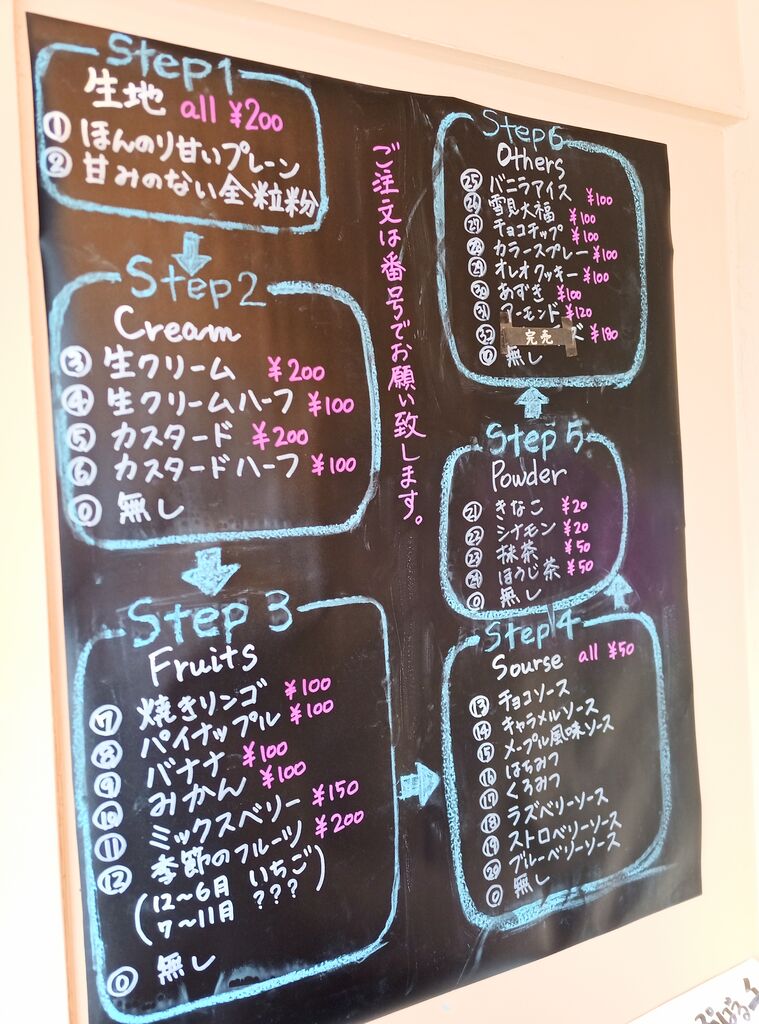 Step 1
生地 all ¥200
① ほんのり甘いプレーン
② 甘みのない全粒粉
Step 2
Cream
③ 生クリーム ¥200
④ 生クリームハーフ ¥100
⑤ カスタード ¥200
⑥ カスタードハーフ ¥100
⓪ 無し
Step 3
Fruits
⑦ 焼きリンゴ ¥100
⑧ パイナップル ¥100
⑨ バナナ ¥100
⑩ みかん ¥100
⑪ ミックスベリー ¥150
⑫ 季節のフルーツ ¥200
(12～6月 いちご
7～11月 ???)
⓪ 無し
ご注文は番号でお願い致します。
Step 4
Sourse all ¥50
⑬ チョコソース
⑭ キャラメルソース
⑮ メープル風味ソース
⑯ はちみつ
⑰ くろみつ
⑱ ラズベリーソース
⑲ ストロベリーソース
⑳ ブルーベリーソース
⓪ 無し
Step 5
Powder
㉑ きなこ ¥20
㉒ シナモン ¥20
㉓ 抹茶 ¥50
㉔ ほうじ茶 ¥50
⓪ 無し
Step 6
Others
㉕ バニラアイス ¥100
㉖ 雪見大福 ¥100
㉗ チョコチップ ¥100
㉘ カラースプレー ¥100
㉙ オレオクッキー ¥100
㉚ あずき ¥100
㉛ アーモンド ¥120
㉜ 完売 ド ¥180
⓪ 無し